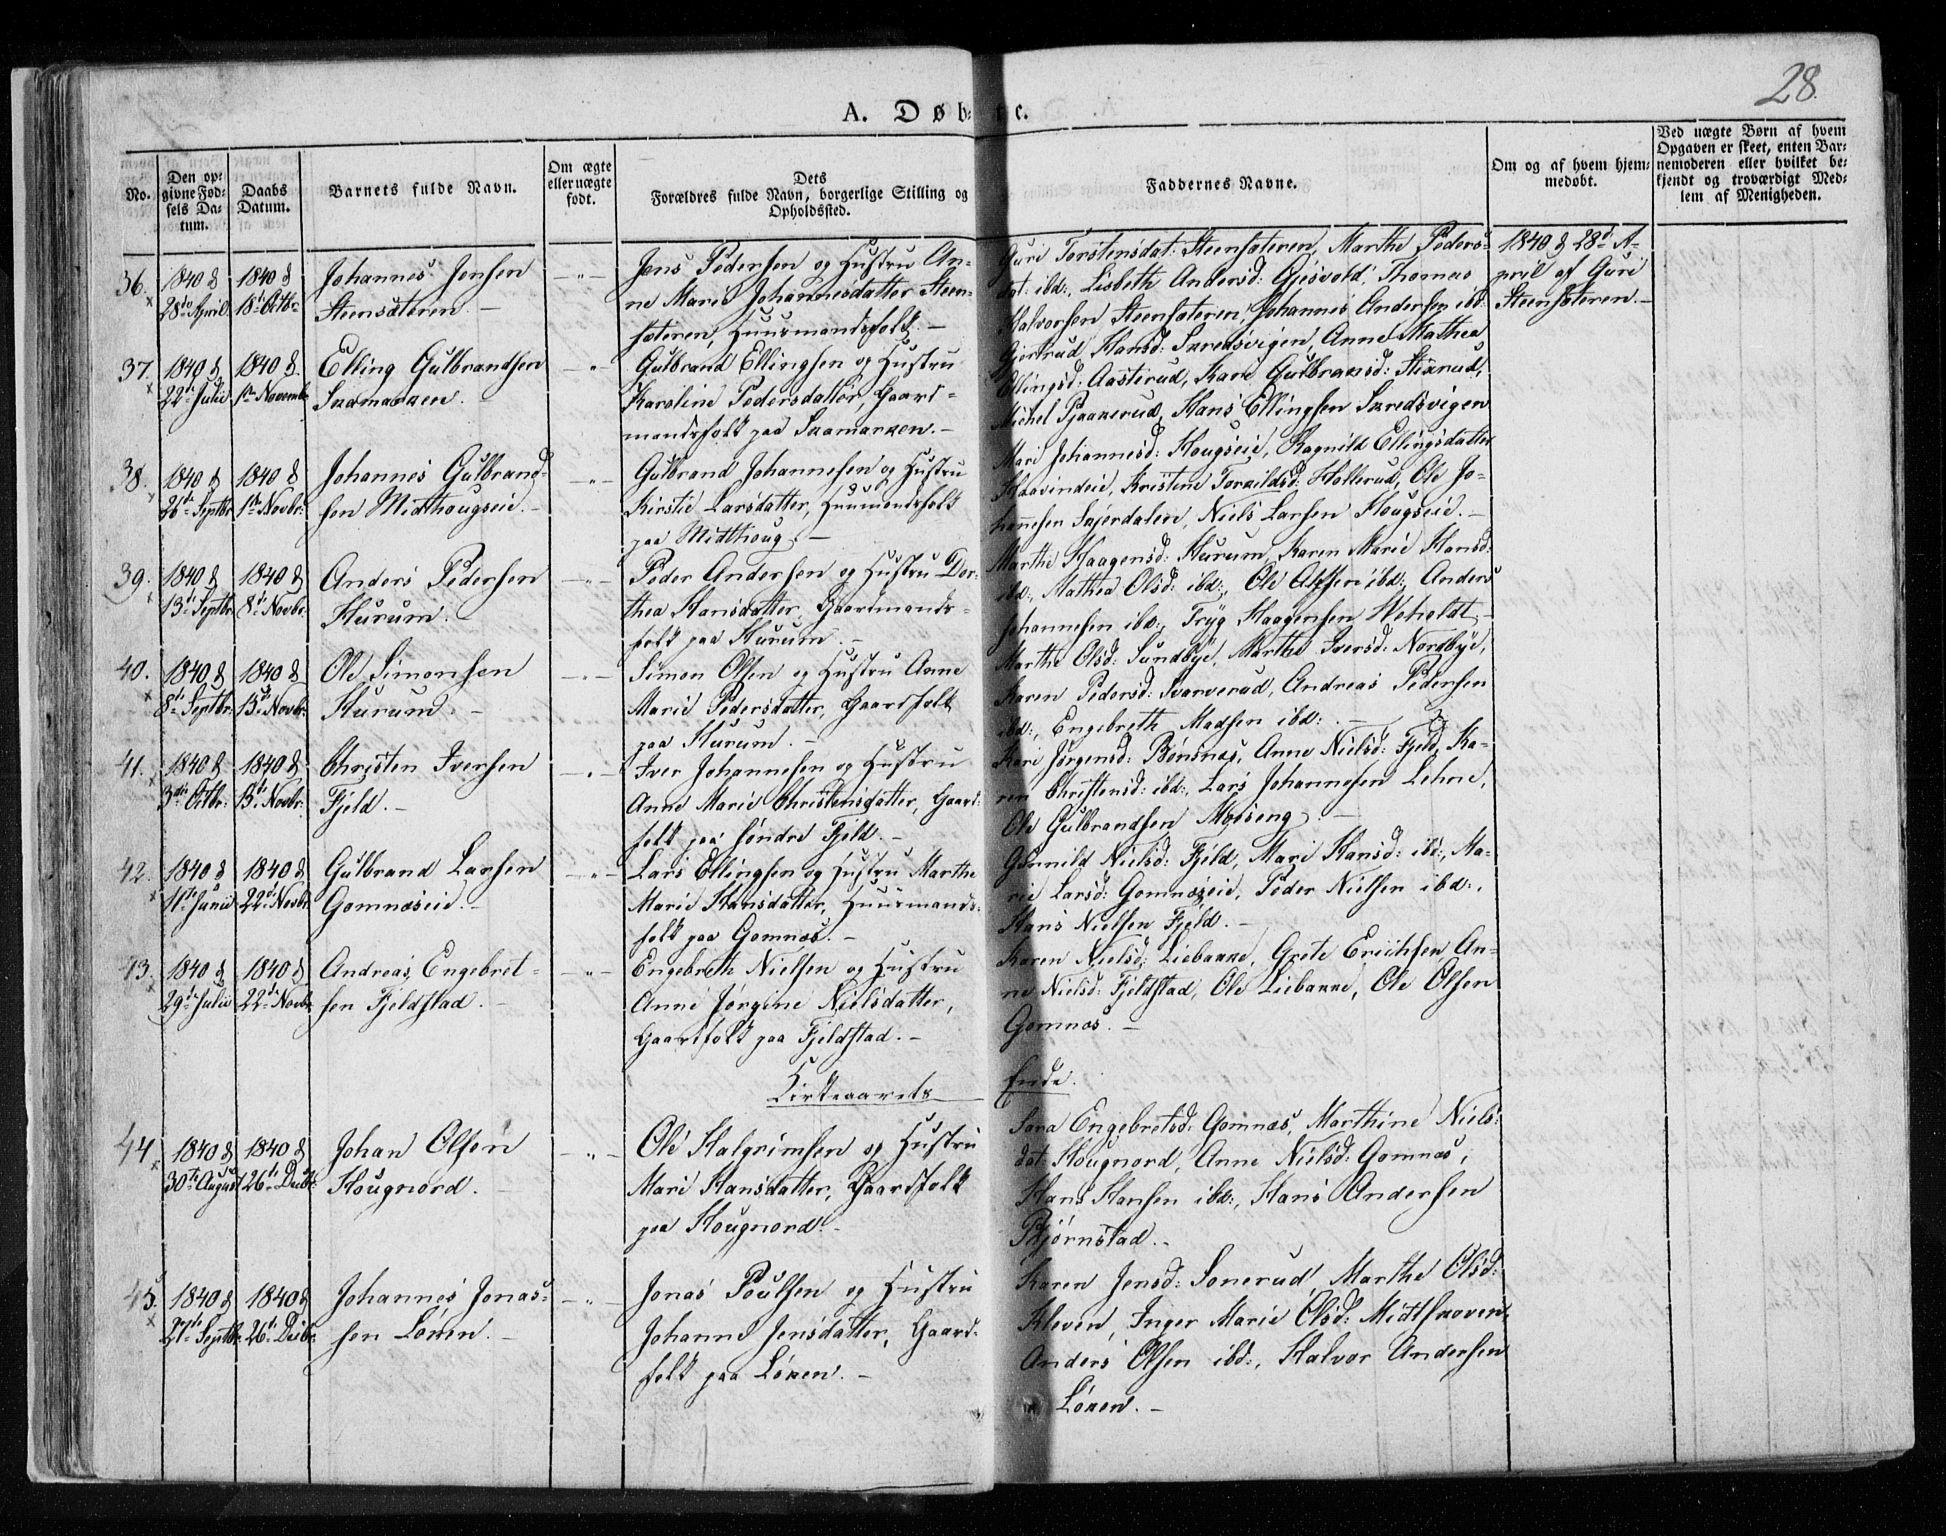 28.
A. Døbte.
No.
Den op-
givne Fød-
sels Da-
tum.
Daabs
Datum.
Barnets fulde Navn.
Om ægte
eller uægte
født.
Dets
Forældres fulde Navn, borgerlige Stilling og
Opholdssted.
Faddernes Navne.
Om og af hvem hjem-
medøbt.
Ved uægte Børn af hvem
Opgaven er skeet, enten Bar-
nemoderen eller hvilket be-
kjendt og troværdigt Med-
lem af Menigheden.
36.
1840 d
28de April
1840 d
18de Octbr
Johannes Jensen
Steensæteren. —
— " —
Jens Pedersen og Hustru An-
ne Marie Johannesdatter Steen-
sæteren, Huusmandsfolk. —
Guri Torstensdat: Steensæteren, Marthe Peders-
dat: ibd:, Lisbeth Andersd: Gjesvold, Thomas
Halvorsen Steensæteren, Johannes Andersen ibd:
1840 d 28de A-
pril af Guri
Steensæteren. —
37.
1840 d
22de Julie
1840 d.
1ste Novembr
Elling Gulbrandsen
Skamarken. —
— " —
Gulbrand Ellingsen og Hustru
Karoline Pedersdatter, Gaard-
mandsfolk paa Skamarken. —
Gjertrud Hansd: Skredsvigen, Anne Mathea
Ellingsd: Aasterud, Kari Gulbransd: Stixrud,
Michel Pjaakerud, Hans Ellingsen Skredsvigen
38.
1840 d
26de Septbr
1840 d
1ste Novbr:
Johannes Gulbrand-
sen Midthougseie. —
— " —
Gulbrand Johannesen og Hustru
Kirstie Larsdatter, Huusmandsfolk
paa Midthoug. —
Mari Johannesd: Hougseie, Ragnild Ellingsdatter
Haavindeie, Kristine Torkildsd: Hollerud, Ole Jo-
hannesen Skjerdalen, Niels Larsen Hougseie. —
39.
1840 d
13de Septbr
1840 d
8de Novbr:
Anders Pedersen
Hurum. —
— " —
Peder Andersen og Hustru Dor-
thea Hansdatter, Gaardmands-
folk paa Hurum. —
Marthe Haagensd: Hurum, Karen Marie Hansd:
ibd:, Mathea Olsd: ibd:, Ole Alfsen ibd:, Anders
Johannesen ibd:, Tryg Haagensen Weholdt —
40.
1840 d
8de Septbr:
1840 d
15de Novbr:
Ole Simonsen
Hurum. —
— " —
Simon Olsen og Hustru Anne
Marie Pedersdatter, Gaardfolk
paa Hurum. —
Marthe Olsd: Sundbye, Marthe Iversd: Nordbye,
Karen Pedersd: Svarverud, Andreas Pedersen
ibd:, Engebreth Madsen ibd: —
41.
1840 d
3die Octbr:
1840 d
15de Novbr:
Christen Iversen
Fjeld. —
— " —
Iver Johannesen og Hustru
Anne Marie Christensdatter, Gaard-
folk paa søndre Fjeld. —
Kari Jörgensd: Bönsnæs, Anne Nielsd: Fjeld, Ka-
ren Christensd: ibd:, Lars Johannesen Lehne,
Ole Gulbrandsen Moeseng. —
42.
1840 d
11te Junie
1840 d
22de Novbr:
Gulbrand Larsen
Gomnæseie. —
— " —
Lars Ellingsen og Hustru Marthe
Marie Hansdatter, Huusmands-
folk paa Gomnæs. —
Gunnild Nielsd: Fjeld, Mari Hansd: ibd:, Ma-
rie Larsd: Gomnæseie, Peder Nielsen ibd:,
Hans Nielsen Fjeld. —
43.
1840 d
29de Julie
1840 d
22de Novbr
Andreas Engebret-
sen Fjeldstad. —
— " —
Engebreth Nielsen og Hustru
Anne Jørgine Nielsdatter,
Gaardfolk paa Fjeldstad. —
Karen Nielsd: Liebakke, Grete Erichsen An-
ne Nielsd: Fjeldstad, Ole Liebakke, Ole Olsen
Gomnæs. —
Kirkeaarets Ende.
44.
1840 d
30te August
1840 d
26de Decbr:
Johan Olsen
Hougnord. —
— " —
Ole Halgrimsen og Hustru
Mari Hansdatter, Gaardfolk
paa Hougnord. —
Sara Engebretsd: Gomnæs, Marthine Niels-
dat: Hougnord, Anne Nielsd: Gomnæs,
Hans Hansen ibd:, Hans Andersen
Bjørnstad. —
45.
1840 d
27de Septbr:
1840 d
26de Decbr:
Johannes Jonas-
sen Løken. —
— " —
Jonas Poulsen og Hustru
Johanne Jensdatter, Gaard-
folk paa Løken. —
Karen Jensd: Sonerud, Marthe Olsd:
Kleven, Inger Marie Olsd: Midtskoven,
Anders Olsen ibd:, Halvor Andersen
Løken. —